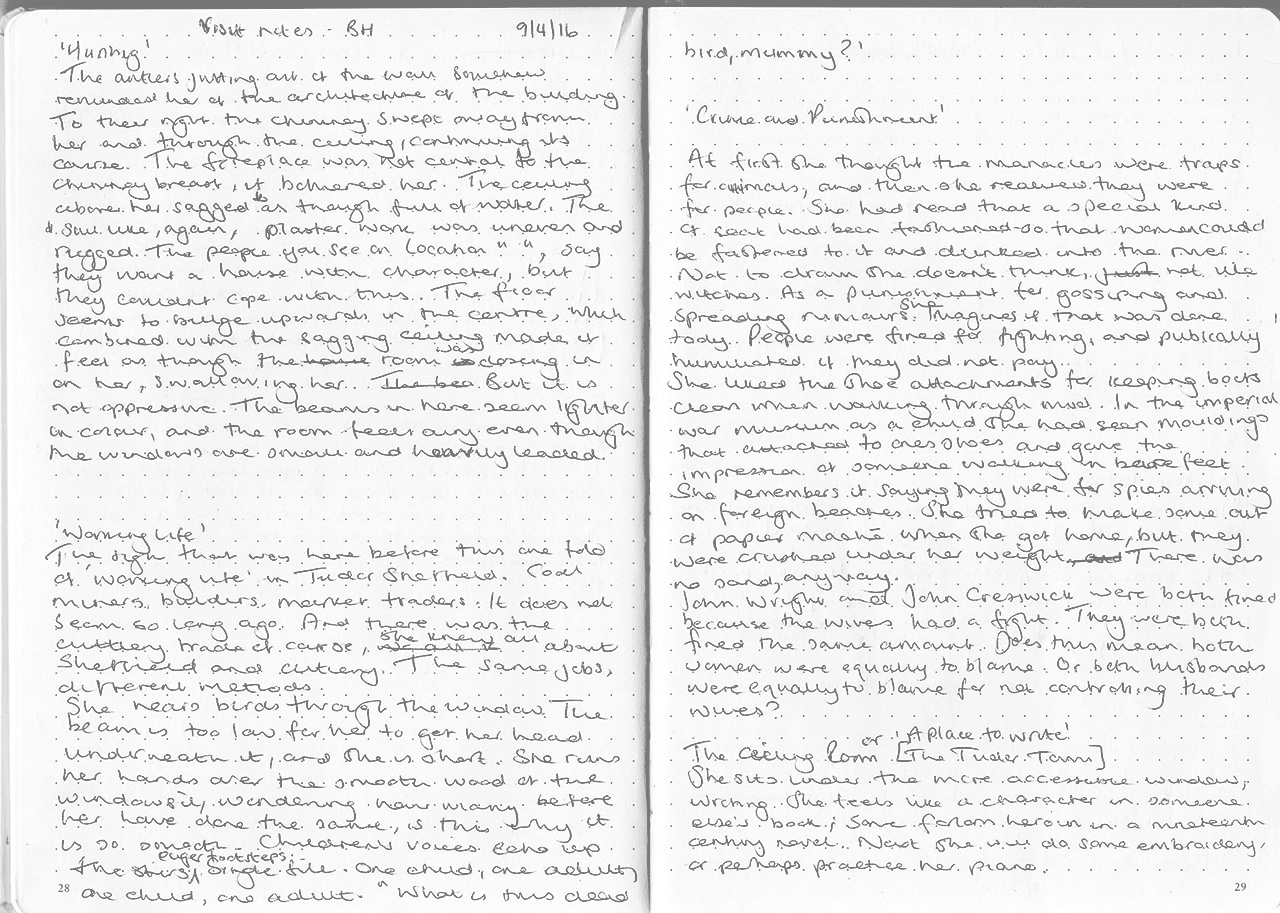 Visit notes - BH 9/4/16
'Hunting'
The antlers jutting out of the wall somehow
reminded her of the architecture of the building.
To their right the chimney swept away from
her and through the ceiling, continuing its
course. The fireplace was not central to the
chimney breast, it bothered her. The ceiling
above her sagged as though full of water. The
soul-like, again, plaster work was uneven and
rugged. The people you see on Location " ", say
they want a house with character, but
they couldn't cope with this. The floor
seems to bulge upwards in the centre, which
combined with the sagging ceiling made it
feel as though the house room was closing in
on her, swallowing her. The bea But it is
not oppressive. The beams in here seem lighter
in colour, and the room feels airy even though
the windows are small and heavily leaded.
'Working Life'
The sign that was here before this one told
of 'working life' in Tudor Sheffield. Coal
miners, builders, market traders. It does not
seem so long ago. And there was the
cutlery trade of course, she knew all about
Sheffield and cutlery. The same jobs,
different methods.
She hears birds through the window. The
beam is too low for her to get her head
underneath it, and she is short. She runs
her hands over the smooth wood of the
windowsil, wondering how many before
her have done the same, is this why it
is so smooth. Children's voices echo up
the stairs, eager footsteps; single file. One child, one adult,
one child, one adult. "What is this dead
28
bird, mummy?'
'Crime and Punishment'
At first she thought the manacles were traps
for animals, and then she realised they were
for people. She had read that a special kind
of seat had been fashioned so that women could
be fastened to it and dunked into the river.
Not to drown she doesn't think, just not like
witches. As a punishment for gossiping and
spreading rumours. She imagines if that was done
today. People were fined for fighting, and publically
humiliated if they did not pay.
She liked the shoe attachments for keeping boots
clean when walking through mud. In the imperial
war museum as a child she had seen mouldings
that attached to ones shoes and gave the
impression of someone walking in bare feet
She remembers it saying they were for spies arriving
on foreign beaches. She tried to make some out
of papier maché when she got home, but they
were crushed under her weight, and There was
no sand, anyway.
John Wright and John Cresswick were both fined
because the wives had a fight. They were both
fined the same amount. Does this mean both
women were equally to blame. Or both husbands
were equally to blame for not controlling their
wives?
The Ceiling Room or 'A place to write' [The Tudor Tann]
She sits under the more accessible window,
writing. She feels like a character in someone
else's book; some forlorn heroin in a nineteenth
century novel. Next she will do some embroidery,
or perhaps practice her piano.
29